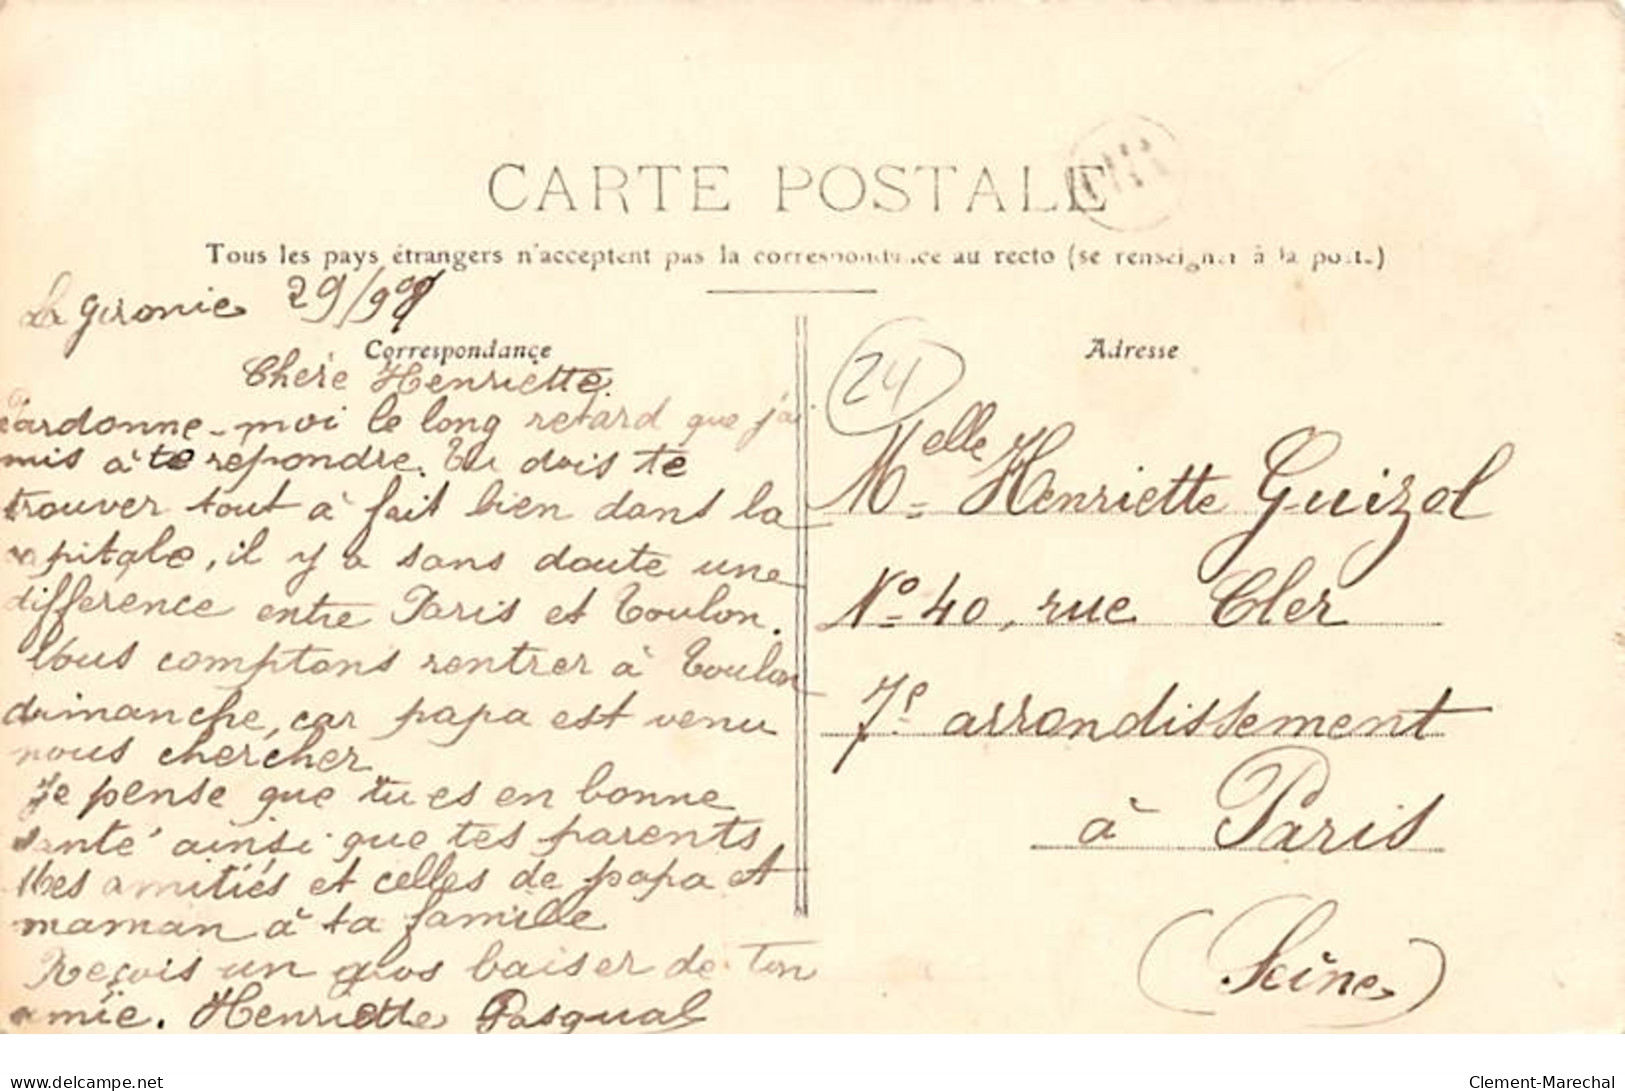 CARTE POSTALE
Tous les pays étrangers n'acceptent pas la correspondance au recto (se renseigner à la poste)
La Gironie 29/9
Correspondance
Chère Henriette.
Pardonne-moi le long retard que j'ai
mis à te repondre. Tu dois te
trouver tout à fait bien dans la
capitale, il y a sans doute une
difference entre Paris et Toulon.
Nous comptons rentrer à Toulon
dimanche, car papa est venu
nous chercher
Je pense que tu es en bonne
santé ainsi que tes parents
Mes amitiés et celles de papa et
maman à ta famille
Reçois un gros baiser de ton
amie. Henriette Pasqual
Adresse
24
Melle Henriette Guizol
No 40, rue Cler
7e arrondissement
à Paris
(Seine)
delcampe.net
Clement-Marechal